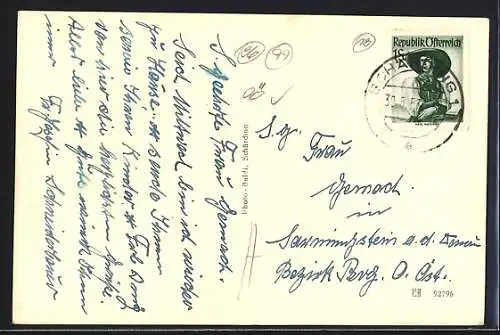 S. Geehrte Frau Gemach.
Seid Mittwoch bin ich wieder
zu Hause. + sende Ihnen
sowie Ihren Kinder +
von hier die herzlichsten Grüße.
Alles liebe + gute wünscht Ihnen
immer
Photo-Buhtz, Schärding
96
99
Republik Österreich
1S
SCHÄRDING 1
S. g.
Frau
Gemach
in
Sarmingstein a. d. Donau
Bezirk Perg. O. Öst.
92796